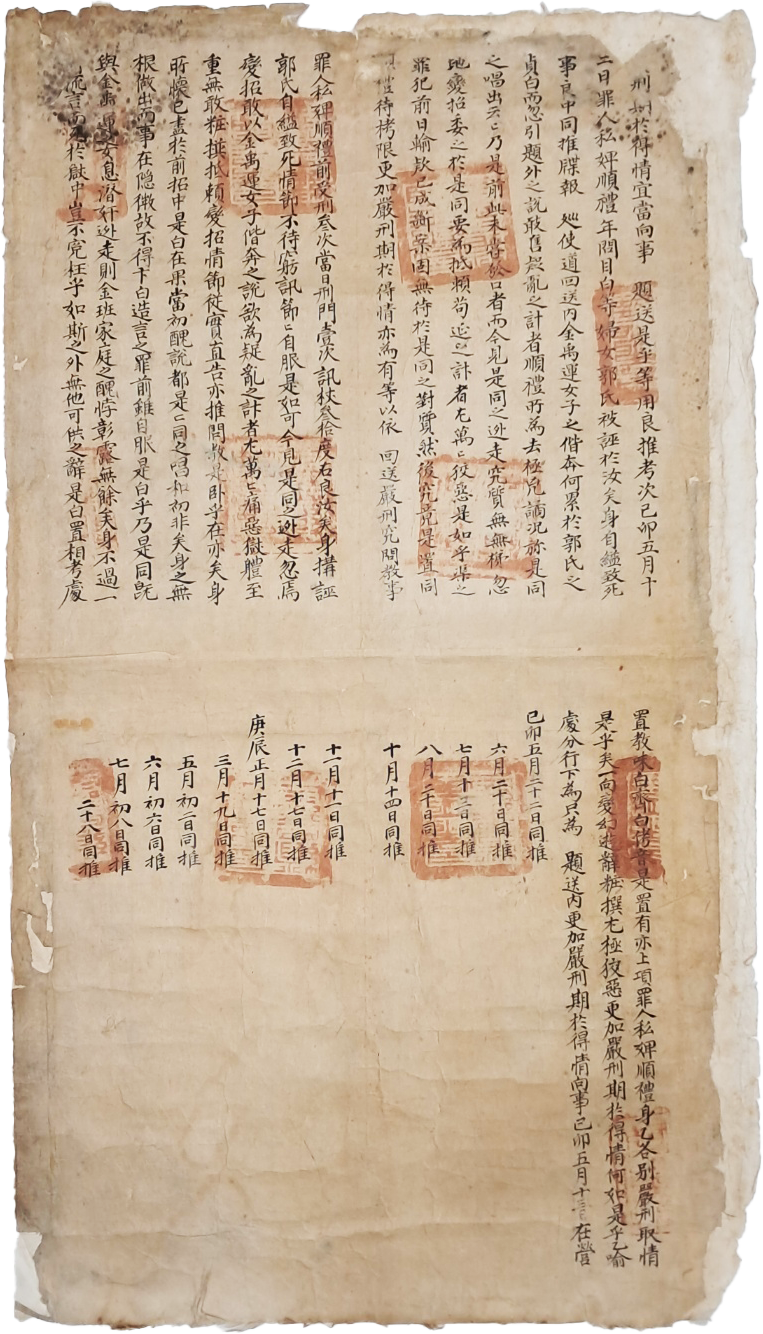 刑期於得情宜當向事 題送是乎等用良推考次己卯五月十
二日罪人私婢順禮年問目白等婦女郭氏被誣於汝矣身自縊致死
事良中同推牒報 巡使道回送內金禹運女子之偕奔何累於郭氏之
貞白而忽引題外之說敢售疑亂之計者順禮所為去極兇譎況旀是同
之唱出云云乃是前此未嘗發口者而今見是同之逃走究質無憑忽
地變招委之於是同要為抵賴苟延之計者尤萬萬狡惡是如乎渠之
罪犯前日輸款已成斷案固無待於是同之對質然後究竟是置同
待拷限更加嚴刑期於得情亦為有等以依 回送嚴刑究問教事
罪人私婢順禮前受刑叄次當日刑問壹次訊杖叄拾度右良汝矣身搆誣
郭氏自縊致死情節不待窮訊節節自服是如可今見是同之逃走忽焉
變招敢以金禹運女子偕奔之說欲為疑亂之計者尤萬萬痛惡獄體至
重無敢粧撰抵賴變招情節從實直告亦推問教是臥乎在亦矣身
所懷已盡於前招中是白在果當初醜說都是是同之唱和初非矣身之無
根做出而事在隱微故不得下白造言之罪前雖自服是白乎乃是同旣
與金禹運女息潛奸逃走則金班家庭之醜悖彰露無餘矣身不過一
流言而死於獄中豈不冤枉乎如斯之外無他可供之辭是白置相考處
置教味白齊白侤音是置有亦上項罪人私婢順禮身乙各別嚴刑取情
是乎矣一向變幻遊辭粧撰尤極狡惡更加嚴刑期於得情何如是乎乙喩
處分行下為只為 題送內更加嚴刑期於得情向事己卯五月十三日在營
己卯五月二十二日同推
六月二十日同推
七月十三日同推
八月二十日同推
十月十四日同推
十一月十一日同推
十二月十七日同推
庚辰正月十七日同推
三月十九日同推
五月初二日同推
六月初六日同推
七月初八日同推
二十八日同推